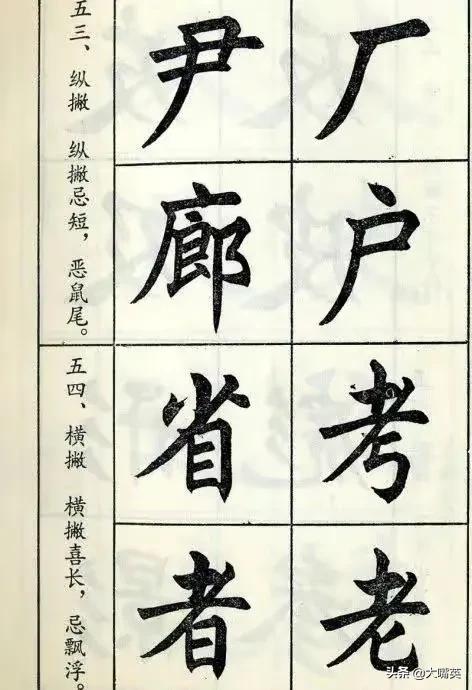 五三、 纵撇 纵撇忌短，恶鼠尾。
厂户
尹廊
五四、 横撇 横撇喜长，忌飘浮。
考老
省者
头条 @大嘴英